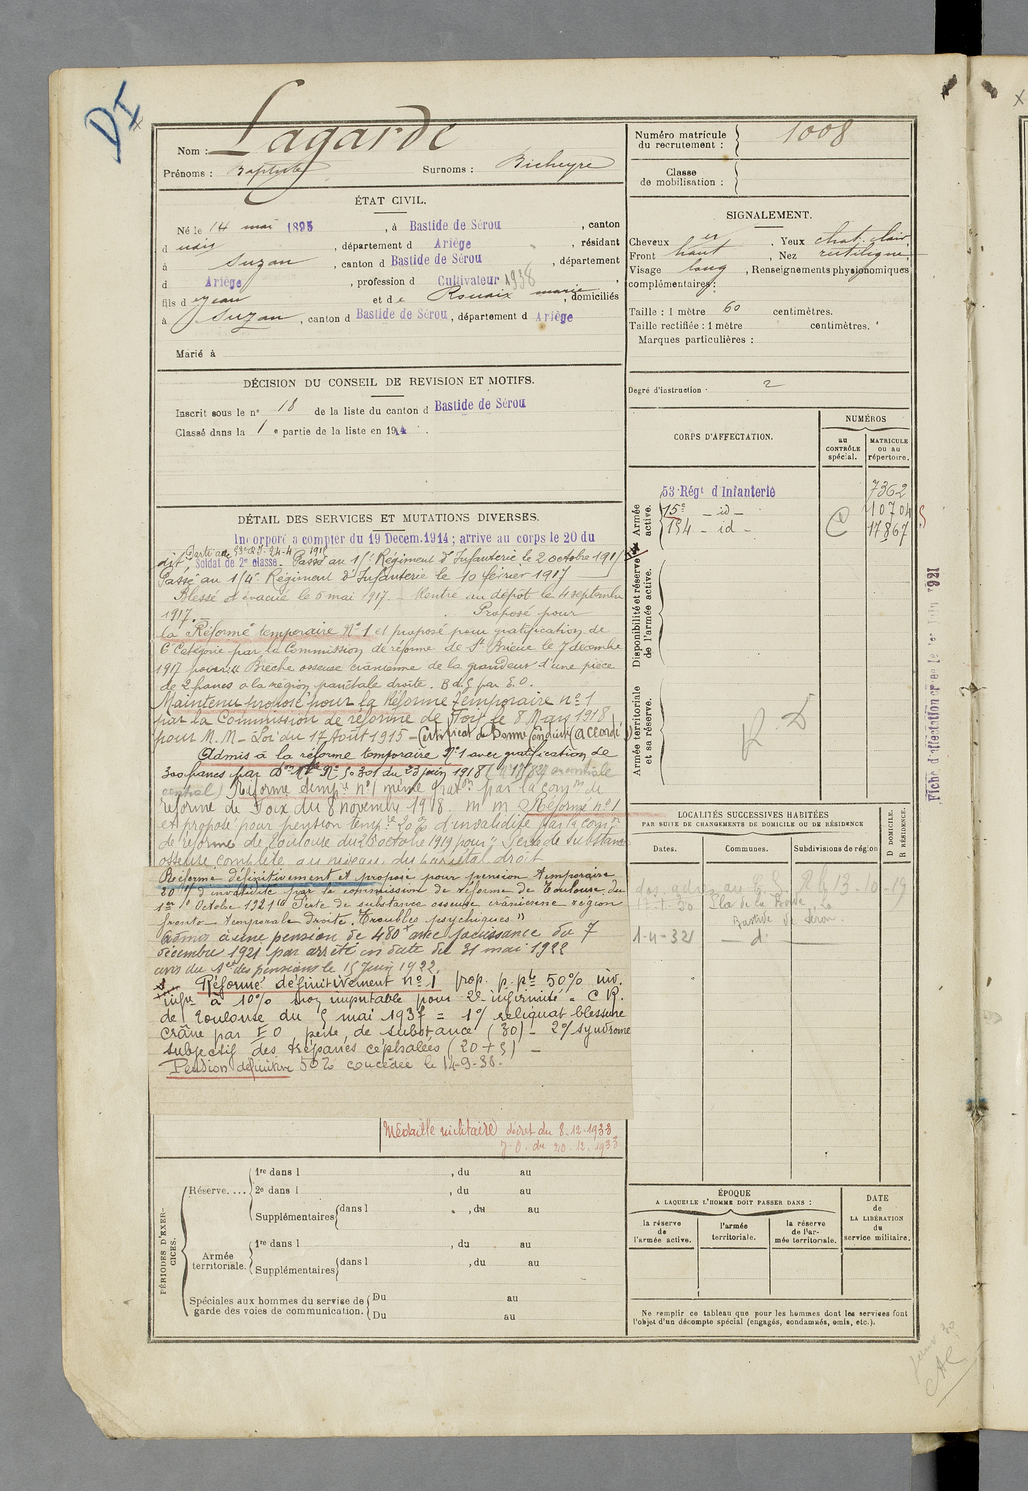 DI
Nom : Lagarde
Prénoms : Baptiste Surnoms : Bicheyre
Numéro matricule du recrutement : 1008
Classe de mobilisation :
ÉTAT CIVIL.
Né le 14 mai 1895, à Bastide de Sérou, canton
d udit, département d Ariège, résidant
à Suzan, canton d Bastide de Sérou, département
d Ariège, profession d Cultivateur 1938
fils d e Jean et d e Rouaix marie, domiciliés
à Suzan, canton d Bastide de Sérou, département d Ariège
Marié à
SIGNALEMENT.
Cheveux, Yeux chat. clair
Front haut, Nez rectiligne
Visage long, Renseignements physionomiques
complémentaires :
Taille : 1 mètre 60 centimètres.
Taille rectifiée : 1 mètre centimètres.
Marques particulières :
Degré d'instruction : 2
DÉCISION DU CONSEIL DE REVISION ET MOTIFS.
Inscrit sous le n° 18 de la liste du canton d Bastide de Sérou
Classé dans la 1 e partie de la liste en 1914.
CORPS D'AFFECTATION.
NUMÉROS
au CONTRÔLE spécial.
MATRICULE ou au répertoire.
Armée active.
53e Régt d'Infanterie 7362
15e - id - 10704
154 - id - 17867
Disponibilité et réserve de l'armée active.
Armée territoriale et sa réserve.
R D
Fiche d'affectation
1921
DÉTAIL DES SERVICES ET MUTATIONS DIVERSES.
Incorporé à compter du 19 Decem. 1914 ; arrivé au corps le 20 du
dit, Soldat de 2e classe. Passé au Régiment d'Infanterie le 2 octobre
Passé au Régiment d'Infanterie le 10 février 1917
Blessé et évacué le 5 mai 1917. Rentré au dépôt le 4 septembre
1917. Proposé pour
la Réforme temporaire N°1 et proposé pour gratification de
6e Catégorie par la Commission de réforme de St Brieuc le 7 décembre
1917 pour : Brèche osseuse crânienne de la grandeur d'une pièce
de 2 francs à la région pariétale droite. B d G par E.O.
Maintenu proposé pour la Réforme temporaire n°1
par la Commission de réforme de Foix le 8 Mars 1918
pour M.M - Loi du 17 Août 1915 - Certificat de Bonne Conduite (accordé)
Admis à la réforme temporaire N°1 avec gratification de
300 francs par Don Mle N° 50301 du 23 juin 1918
Réforme temp. n°1 même grat. par la comn de
réforme de Foix du 8 novembre 1918. m m. Réformé n°1
et proposé pour pension temp. 20% d'invalidité par la com.
de réforme de Toulouse du 25 octobre 1919 pour " Perte de substance
osseuse complète au niveau du pariétal droit
Réformé définitivement et proposé pour pension temporaire
30% d'invalidité par la commission de réforme de Toulouse du
1er Octobre 1921 "Perte de substance osseuse crânienne région
fronto-temporale droite, troubles psychiques"
Admis à une pension de 480f avec jouissance du 7
décembre 1921 par arrêté en date du 31 mai 1922
avis du des pensions le 15 Juin 1922.
Réformé définitivement n°1 prop. p. pte 50% inv.
infre à 10% non imputable pour 2e infirmité = C R.
de Toulouse du 5 mai 1937 = 1°/ reliquat blessure
crâne par E O, perte de substance (30) - 2°/ syndrome
subjectif des trépanés céphalées (20 + 5) -
Pension définitive 50% concédée le 14-9-38.
Médaille militaire décret du 8.12.1933
J.O. du 20.12.1933
LOCALITÉS SUCCESSIVES HABITÉES
PAR SUITE DE CHANGEMENTS DE DOMICILE OU DE RÉSIDENCE
Dates. Communes. Subdivisions de région
D DOMICILE.
R RÉSIDENCE.
13-10-19
Bastide de Serou
1-4-321 - d° -
ÉPOQUE
A LAQUELLE L'HOMME DOIT PASSER DANS :
la réserve de l'armée active.
l'armée territoriale.
la réserve de l'armée territoriale.
DATE de LA LIBÉRATION du service militaire.
Ne remplir ce tableau que pour les hommes dont les services font
l'objet d'un décompte spécial (engagés, condamnés, omis, etc.).
PÉRIODES D'EXERCICES.
Réserve....
1re dans l , du au
2e dans l , du au
Supplémentaires dans l , du au
Armée territoriale.
1re dans l , du au
Supplémentaires dans l , du au
Spéciales aux hommes du service de garde des voies de communication.
Du au
Du au